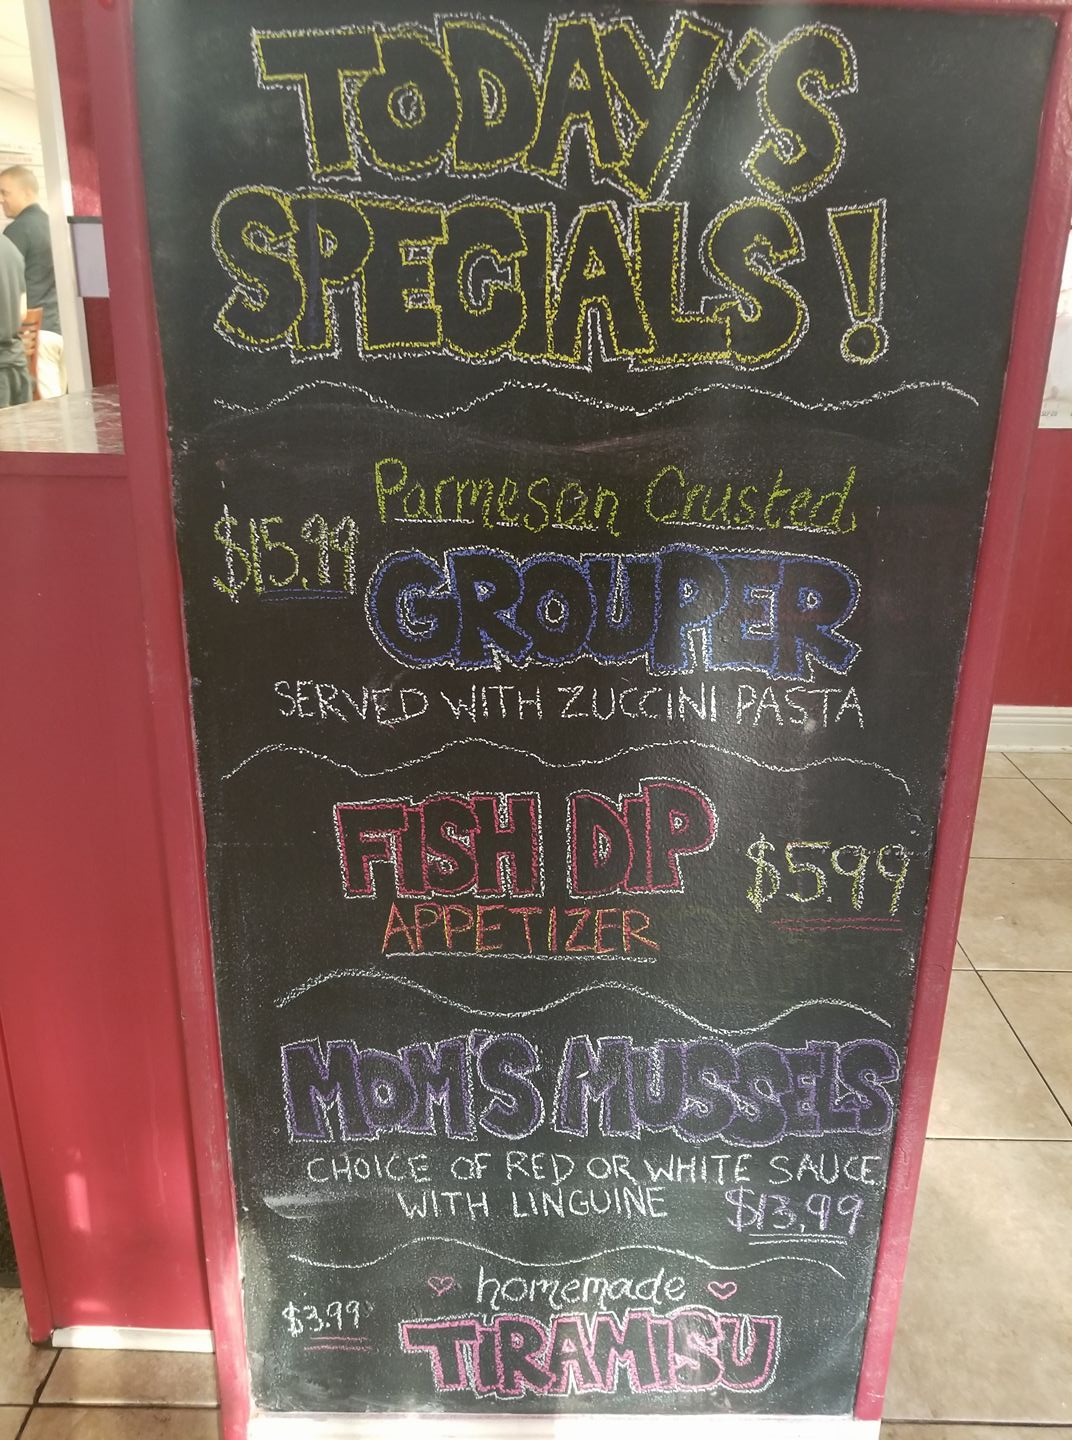 TODAY'S
SPECIALS!
Parmesan Crusted
$15.99
GROUPER
SERVED WITH ZUCCINI PASTA
FISH DIP
$5.99
APPETIZER
MOM'S MUSSELS
CHOICE OF RED OR WHITE SAUCE
WITH LINGUINE $13.99
homemade
$3.99
TIRAMISU